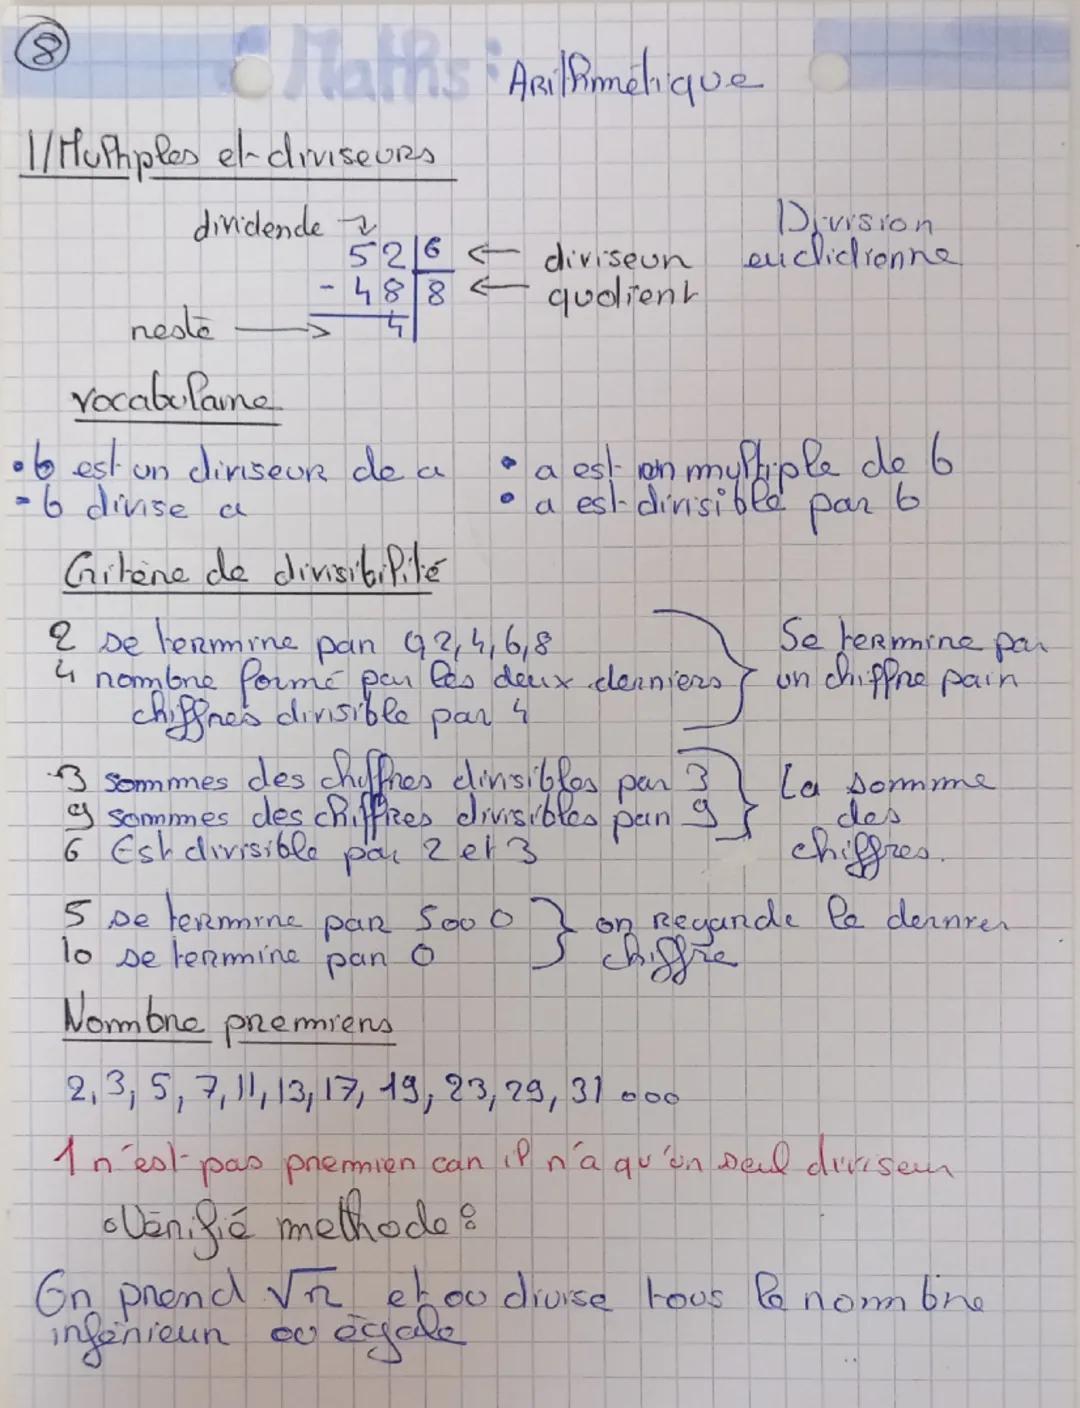 8
Maths : Arithmétique
1/ Multiples et diviseurs
dividende
52 6 ← diviseur
Division
euclidienne
- 48 8 ← quotient
reste → 4
vocabulaire
• b est un diviseur de a • a est un multiple de b
- b divise a • a est divisible par b
Critère de divisibilité
2 se termine par 0,2,4,6,8
4 nombre formé par les deux derniers
chiffres divisible par 4
Se termine par
un chiffre pair
3 sommes des chiffres divisibles par 3
9 sommes des chiffres divisibles par 9
6 Est divisible par 2 et 3
La somme
des
chiffres.
5 se termine par 5 ou 0
10 se termine par 0
on regarde le dernier
chiffre
Nombre premiers
2, 3, 5, 7, 11, 13, 17, 19, 23, 29, 31 ...
1 n'est pas premier car il n'a qu'un seul diviseur
Vérifié methode :
On prend √n et ou divise tous le nombre
inférieur ou égale